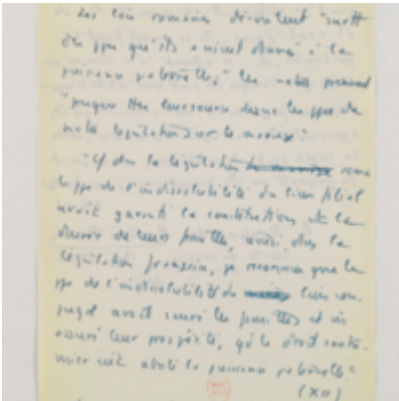 les lois romaines découlent "surtt
du ppe qu'ils avaient donné à la
puissance paternelle," les nôtres prennent
"presque ttes leur source dans les ppes de
notre législation sur le mariage".
"Et ds la législation romaine
le ppe de l'indissolubilité du lien filial
avait garanti la constitution et la
durée de leurs familles, aussi, dans la
législation française, je reconnus que le
ppe de l'indissolubilité du lien con-
jugal avait sauvé les familles et
assuré leur prospérité, qd le droit coutu-
mier eût aboli la puissance paternelle."
(XII)